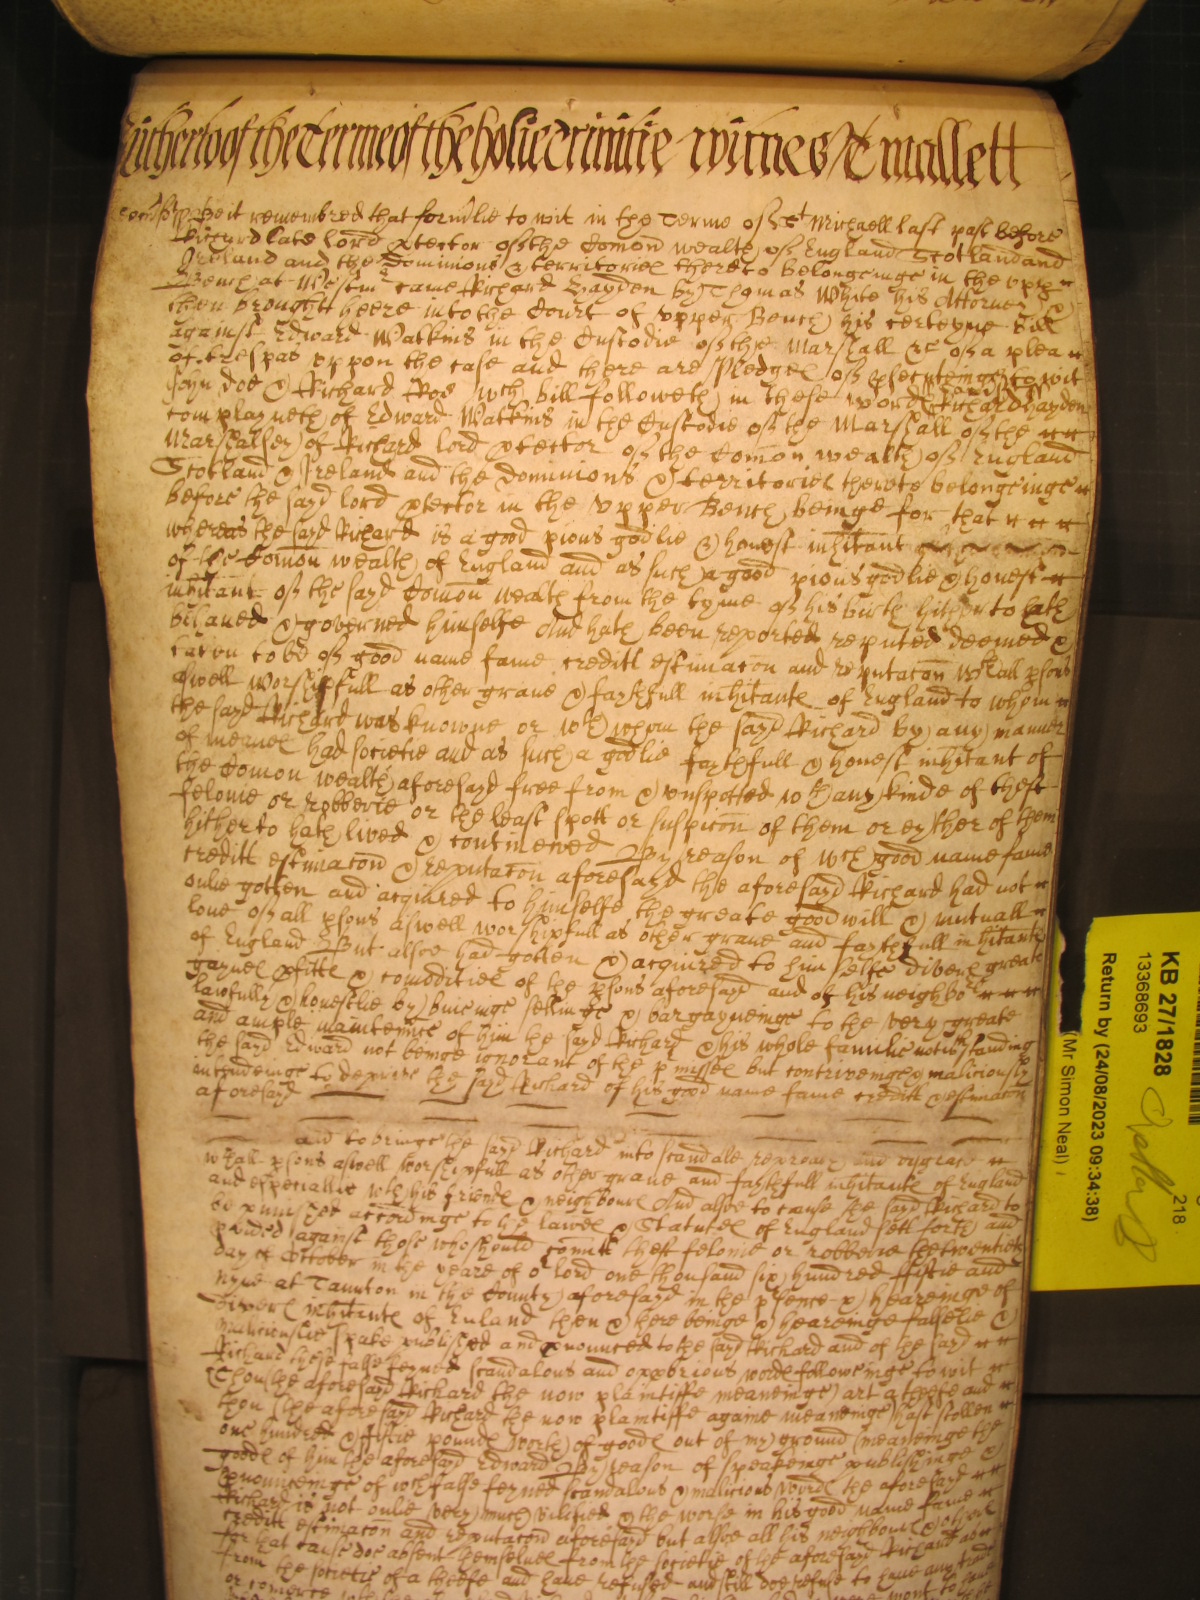 hitherto of the Terme of the holie Trinitie witnes &c mallett
Be it remembred that form'lie to wit in the Terme of St Michaell last past before
Richard late lord ptector of the Comon wealth of England Scotland and
Ireland and the Dominions & territories thereto belonginge in the upp
Bench at Westm' came Richard Hayden by Thomas White his Attorney &
then brought heere into the Court of upper Bench his certeyne Bill
against Edward Watkins in the Custodie of the Marshall &c of a plea
of trespas uppon the case and there are Pledges of psecuteinge to wit
John doe & Richard Roe wch bill followeth in these words Richard Hayden
complayneth of Edward Watkins in the Custodie of the Marshall of the
Marshalsey of Richard lord ptector of the Comon wealth of England
Scotland & Ireland and the Dominions & territories thereto belonginge
before the sayd lord ptector in the Upper Bench beinge for that
whereas the sayd Richard is a good pious godlie & honest inhitant
of the Comon wealth of England and as such a good pious godlie & honest
inhitant of the sayd Comon wealth from the tyme of his birth hitherto hath
behaved & governed himselfe And hath been reported reputed deemed &
taken to be of good name fame creditt estimacon and reputacon wth all psons
aswell worshipfull as other grave & faythfull inhitants of England to whom
the sayd Richard was knowne or wth whom the sayd Richard by any manner
of meanes had societie and as such a godlie faythfull & honest inhitant of
the Comon wealth aforesayd free from & unspotted wth any kinde of theft
felonie or robberie or the least spott or suspicon of them or eyther of them
hitherto hath lived & contineued By reason of wch good name fame
creditt estimacon & reputacon aforesayd the aforesayd Richard had not
onlie gotten and acquired to himselfe the greate good will & mutuall
love of all psons aswell worshipfull as other grave and faythfull inhitants
of England But alsoe had gotten & acquired to himselfe divers great
gaynes pfitts & comodities of the psons aforesayd and of his neighbors
lawfully & honestlie by buieinge sellinge & bargayneinge to the very greate
and ample maintennce of him the sayd Richard & his whole familie notwthstanding
the sayd Edward not beinge ignorant of the pmisses but contriveinge & maliciously
intendeinge to deprive the sayd Richard of his good name fame creditt & estimacon
aforesayd
and to bringe the sayd Richard into scandale reproach and disgrace
wth all psons aswell worshipfull as other grave and faythfull inhitants of England
and especiallie wth his friends & neighbours And alsoe to cause the sayd Richard to
be punished accordinge to the lawes & Statutes of England sett forth and
pvided against those who should comitt theft felonie or robberie the twentieth
day of October in the yeare of or lord one thousand six hundred fiftie and
nyne at Taunton in the County aforesayd in the psence & heareinge of
divers inhitants of England then & there beinge & heareinge falselie &
maliciouslie spake published and pnounced to the sayd Richard and of the sayd
Richard these false feyned scandalous and opprobrious words followeinge to wit
Thou (the aforesayd Richard the now plaintiffe meaneinge) art a theefe and
thou (the aforesayd Richard the now plaintiffe againe meaneinge) hast stollen
one hundred & fiftie pounds worth of goods out of my ground (meaneinge the
goods of him the aforesayd Edward) By reason of speakeinge publishinge &
pnounceinge of wch false feyned scandalous & malicious words the aforesayd
Richard is not onlie very much vilified & the worse in his good name fame
creditt estimacon and reputacon aforesayd but alsoe all his neighbours & others
for that cause doe absent themselves from the societie of the aforesayd Richard as
from the societie of a theefe and have refused and still doe refuse to have any trade
or comerce
KB 27/1828
13368693
218
Return by (24/08/2023 09:34:38)
(Mr Simon Neal)